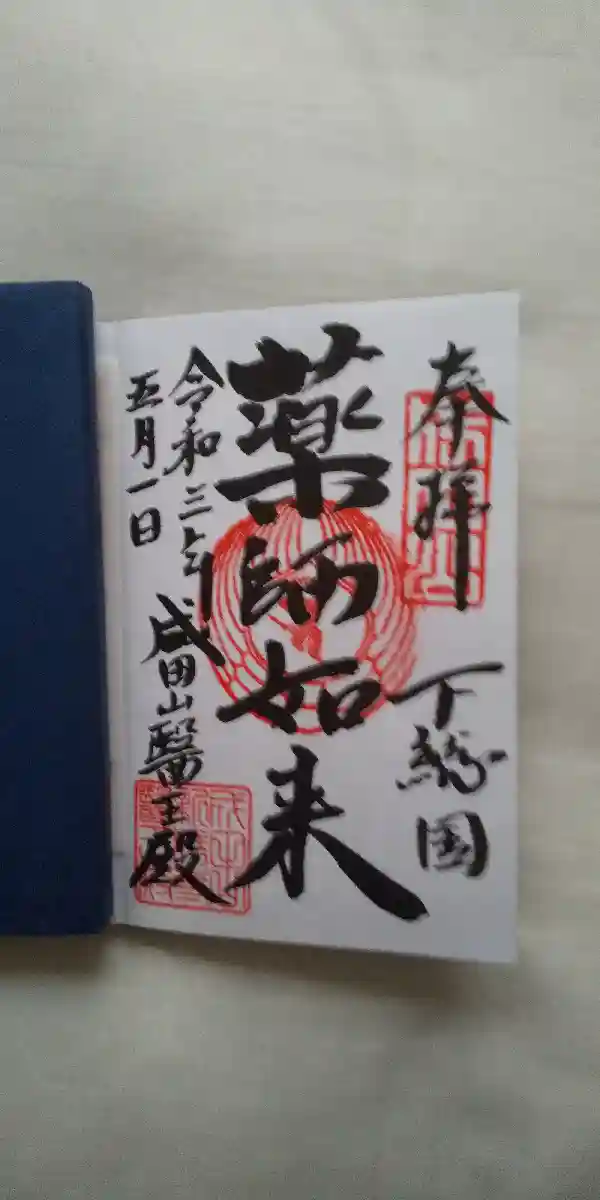 奉拝
下総国
薬師如来
令和三年
五月一日
成田山醫王殿